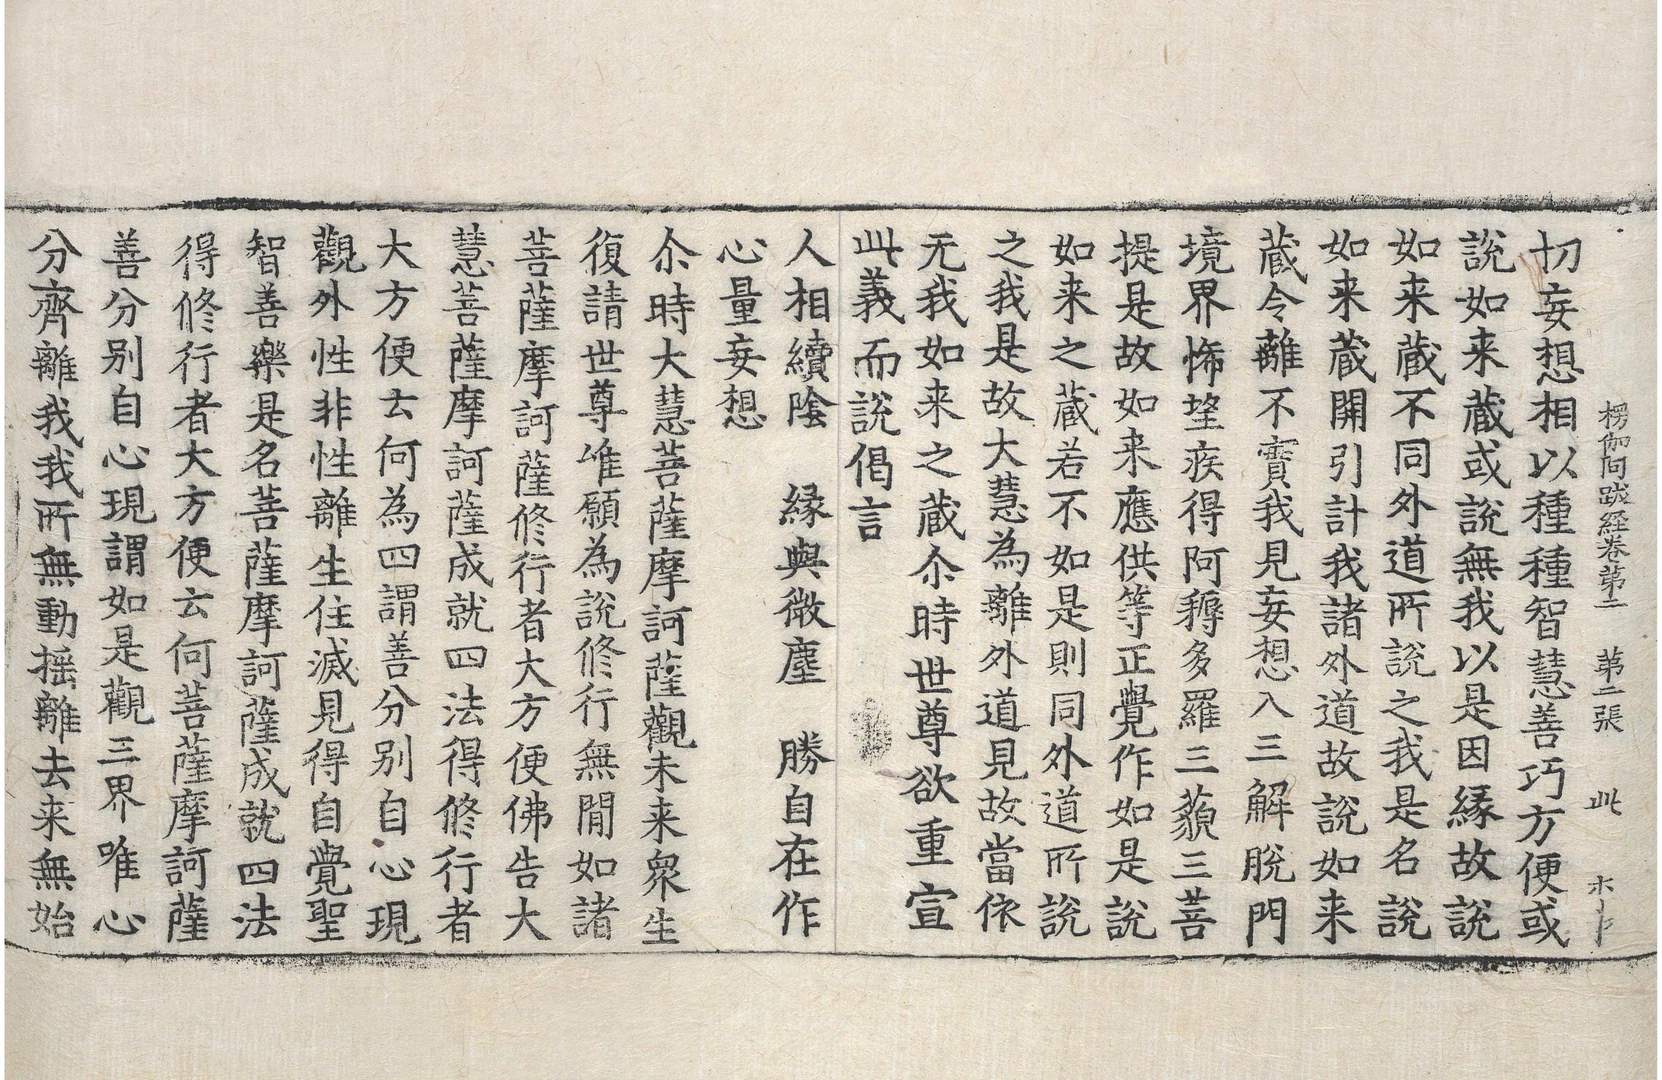 楞伽阿跋経卷苐二　苐二張　此
切妄想相以種種智慧善巧方便或
說如来藏或說無我以是因緣故說
如来藏不同外道所說之我是名說
如来藏開引計我諸外道故說如来
藏令離不實我見妄想入三解脫門
境界悕望疾得阿耨多羅三藐三菩
提是故如来應供等正覺作如是說
如来之藏若不如是則同外道所說
之我是故大慧為離外道見故當依
无我如来之藏尒時世尊欲重宣
此義而說偈言
人相續陰　緣與微塵　勝自在作
心量妄想
尒時大慧菩薩摩訶薩觀未来衆生
復請世尊唯願為說修行無閒如諸
菩薩摩訶薩修行者大方便佛告大
慧菩薩摩訶薩成就四法得修行者
大方便云何為四謂善分別自心現
觀外性非性離生住滅見得自覺聖
智善樂是名菩薩摩訶薩成就四法
得修行者大方便云何菩薩摩訶薩
善分別自心現謂如是觀三界唯心
分齊離我我所無動摇離去来無始